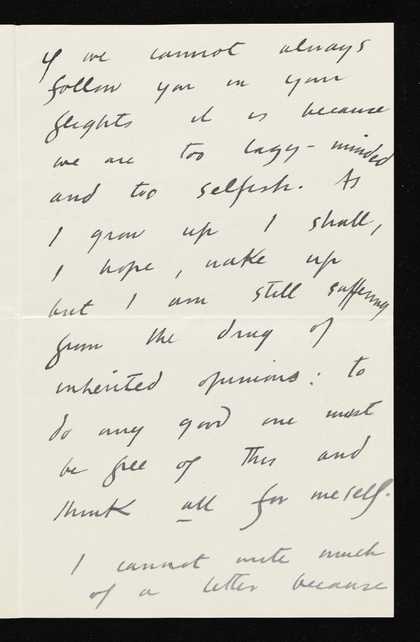 If we cannot always
follow you in your
flights it is because
we are too lazy-minded
and too selfish. As
I grow up I shall,
I hope, wake up
but I am still suffering
from the drug of
inherited opinions: to
do any good one must
be free of this and
think all for meself.
I cannot write much
of a letter because